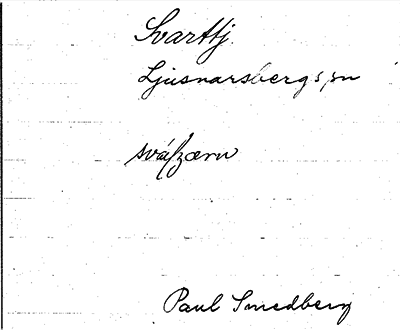 Svarttj.
Ljusnarsbergs sn
Paul Smedberg